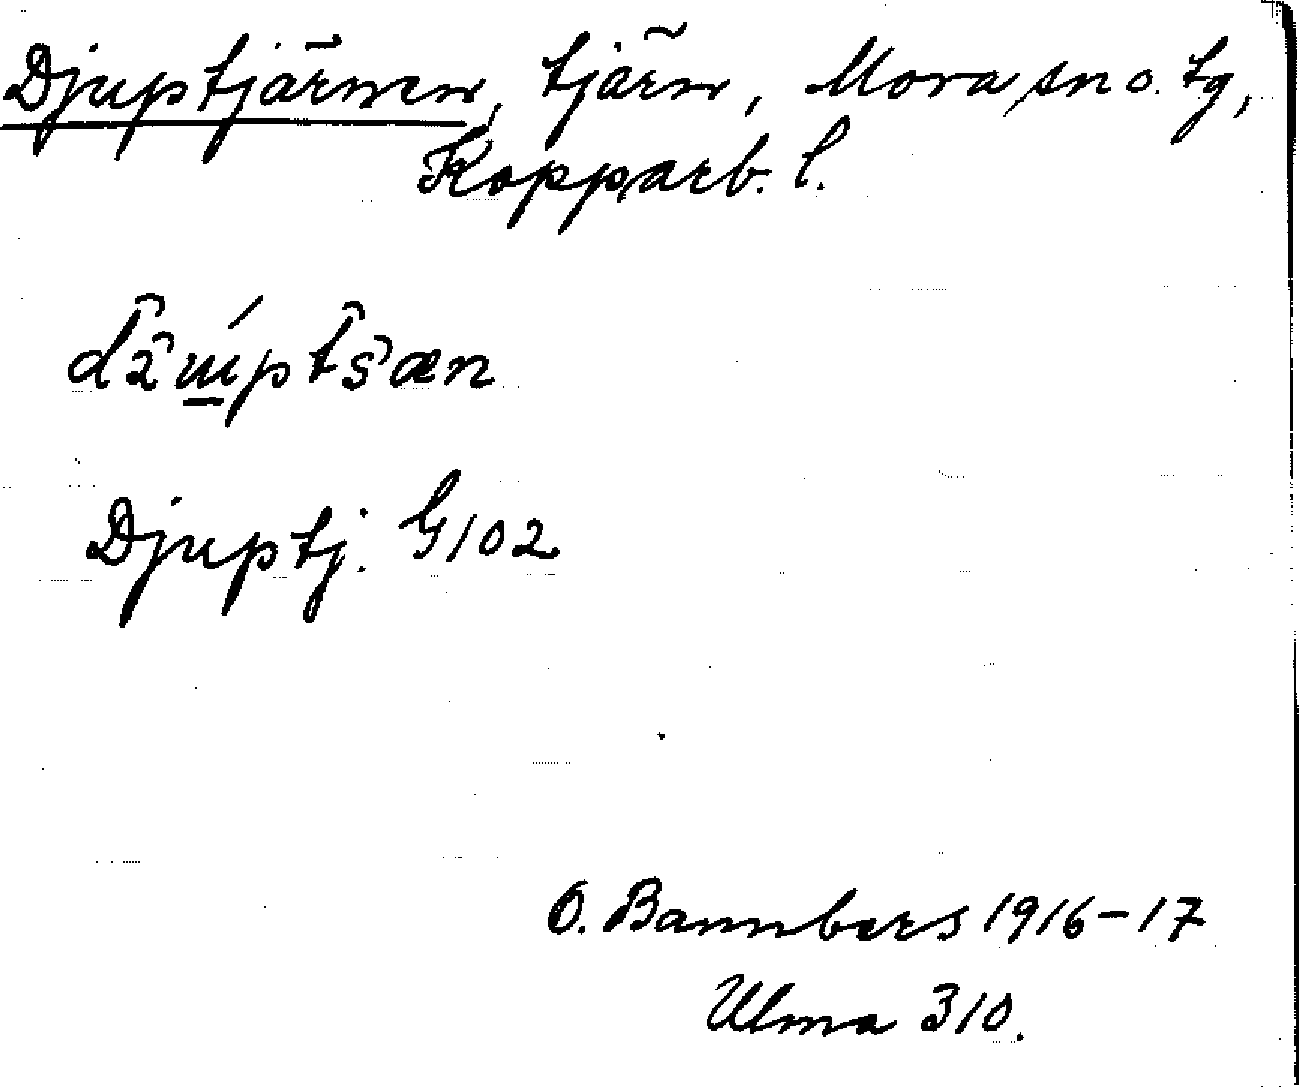 Djuptjärnen, tjärn, Mora sn o. tg,
Kopparb. l.
Djuptj. G 102
O. Bannbers 1916-17
Ulma 310.